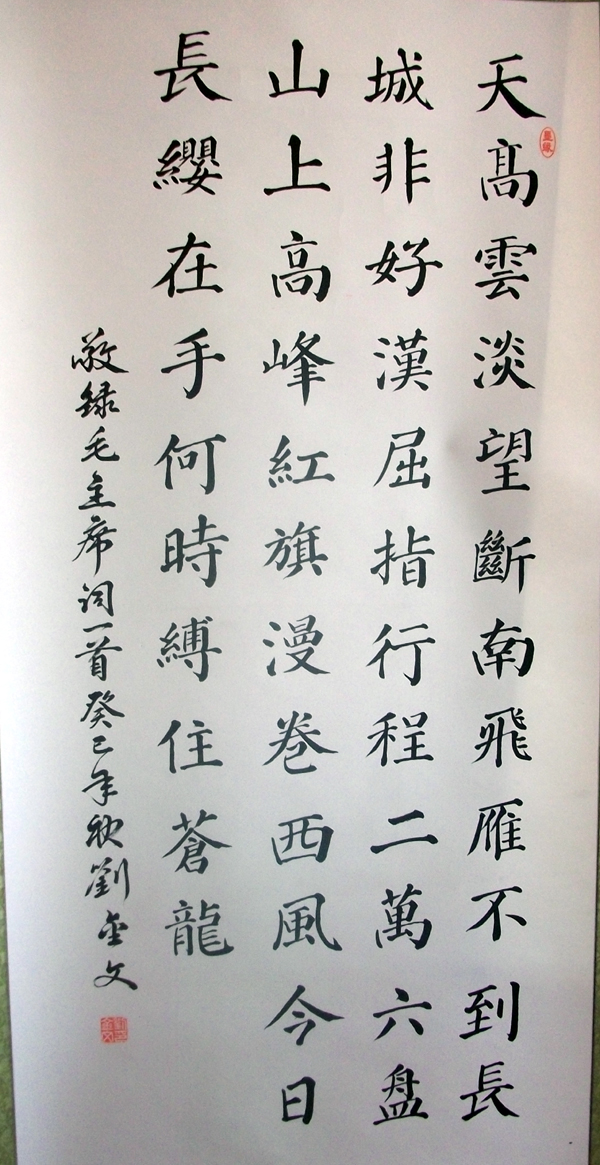 天髙雲淡望斷南飛雁不到長
城非好漢屈指行程二萬六盤
山上高峰紅旗漫卷西風今日
長纓在手何時縛住蒼龍
敬録毛主席词一首癸巳年秋劉金文